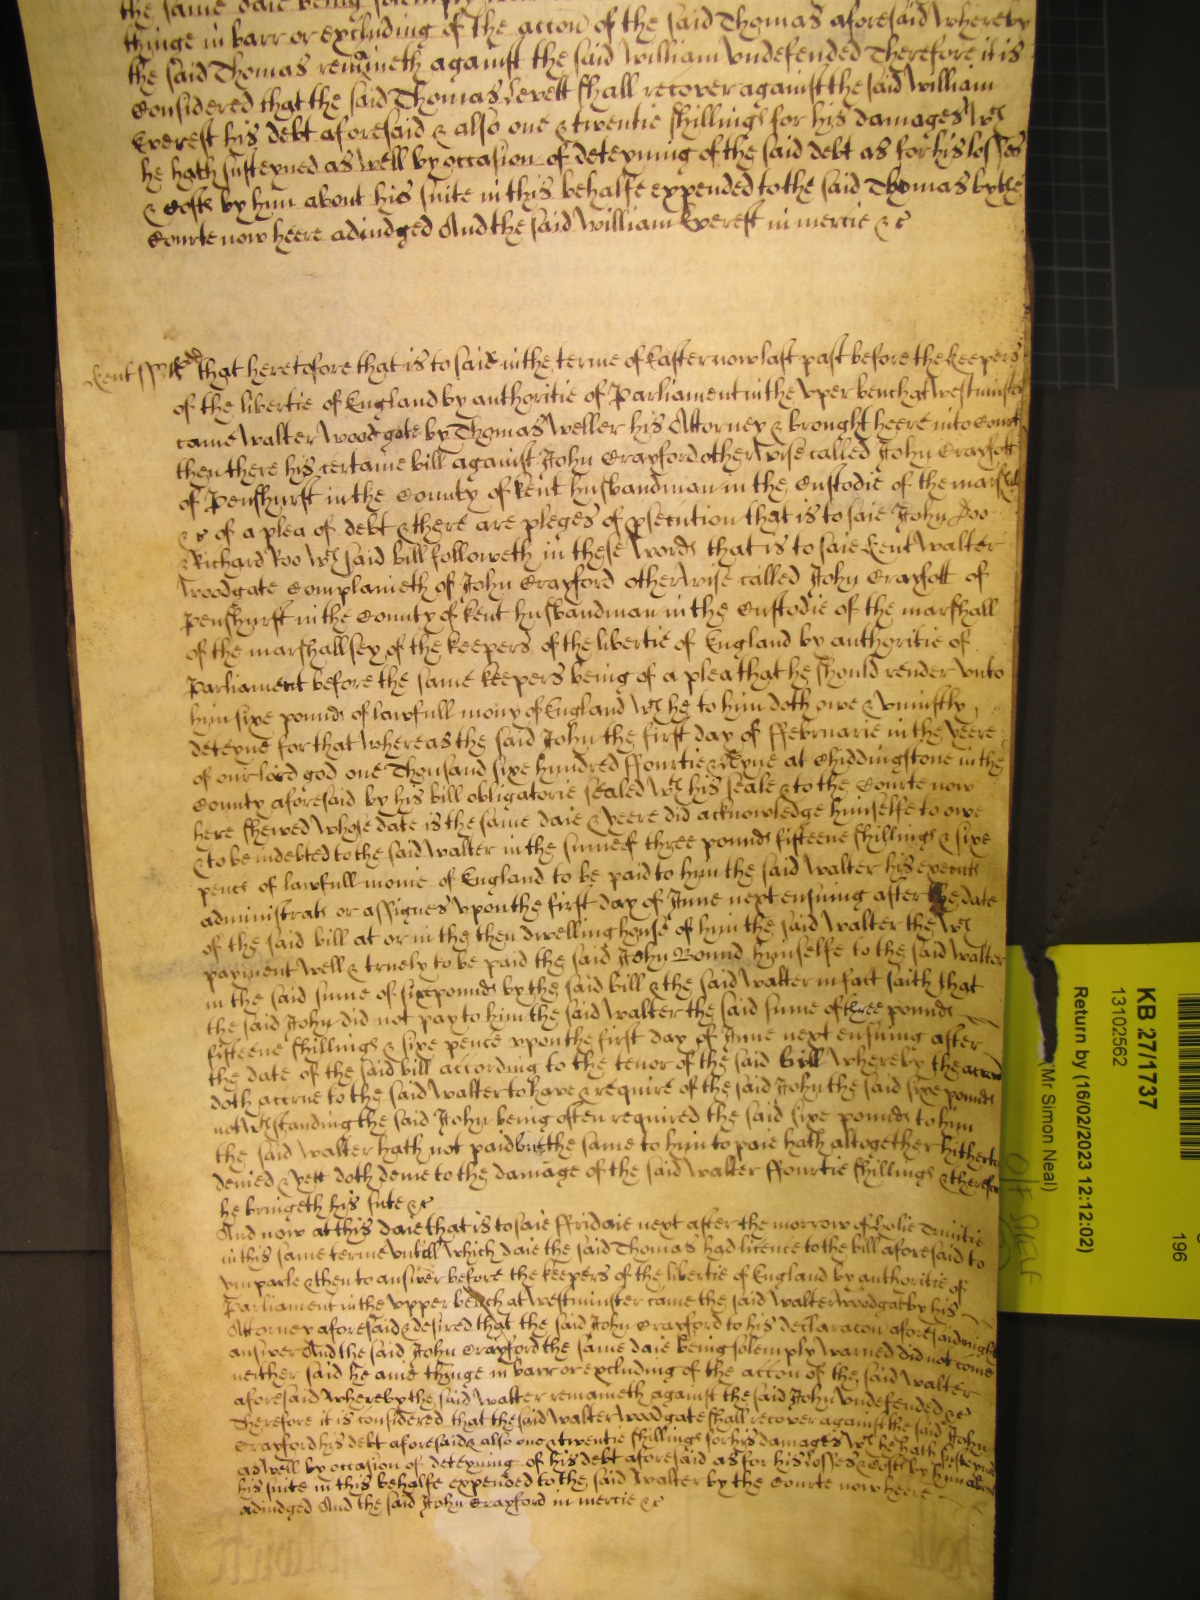 the same daie being solemply
thinge in barr or excluding of the accon of the said Thomas aforesaid whereby
the said Thomas remaineth against the said William undefended Therefore it is
Considered that the said Thomas Levett shall recover against the said William
Everest his debt aforesaid & also one & twentie shillings for his damages wch
he hath susteyned as well by occasion of deteyning of the said debt as for his losses
& Costs by him about his suite in this behalfe expended to the said Thomas by the
Courte now heere adiudged And the said William Everest in mercie &c
Kent ss that heretofore that is to saie in the terme of Easter now last past before the keepers
of the libertie of England by authoritie of Parliament in the vper bench at Westminster
came Walter Woodgate by Thomas Weller his Attorney & brought heere into Court
then there his certaine bill against John Crayford otherwise called John Crayfott
of Penshurst in the County of Kent husbandman in the Custodie of the marshall
&c of a plea of debt & there are pleges of psecution that is to saie John Doo
Richard Roo wch said bill followeth in these words that is to saie Kent Walter
Woodgate Complaineth of John Crayford otherwise called John Crayfott of
Penshurst in the County of Kent husbandman in the Custodie of the marshall
of the marshallsey of the keepers of the libertie of England by authoritie of
Parliament before the same keepers being of a plea that he should render vnto
him sixe pounds of lawfull mony of England wch he to him doth owe & vniustly
deteyne for that whereas the said John the first day of ffebruarie in the yeere
of our lord god one Thousand sixe hundred ffourtie & nyne at Chiddingstone in the
County aforesaid by his bill obligatorie sealed wth his seale & to the Courte now
here shewed whose date is the same daie & yeere did acknowledge himselfe to owe
& to be indebted to the said Walter in the summe of three pounds fifteene shillings & sixe
pence of lawfull monie of England to be paid to him the said Walter his executs
administrats or assignes vpon the first day of June next ensuing after the date
of the said bill at or in the then dwelling house of him the said Walter the wch
payment well & truely to be paid the said John Bound hymselfe to the said Walter
in the said sume of sixe pounds by the said bill & the said Walter in fact saith that
the said John did not pay to him the said Walter the said sume of three pounds
fifteene shillings & sixe pence vpon the first day of June next ensuing after
the date of the said bill according to the tenor of the said bill whereby the accon
doth accrue to the said Walter to have & require of the said John the said sixe pounds
notwthstanding the said John being often required the said sixe pounds to him
the said Walter hath not paid but the same to him to paie hath altogether hitherto
denied & yett doth denie to the damage of the said Walter ffourtie shillings & therefore
he bringeth his sute &c
And now at this daie that is to saie ffridaie next after the morrow of holie Trinitie
in this same terme vntill which daie the said Thomas had licence to the bill aforesaid to
imparle & then to answer before the keepers of the libertie of England by authoritie of
Parliament in the vpper bench at Westminster came the said Walter Woodgat by his
Attorney aforesaid & desired that the said John Crayford to his declaracon aforesaid might
answer And the said John Crayford the same daie being solemply warned did not come
neither said he anie thinge in barr or excluding of the accon of the said Walter
aforesaid whereby the said Walter remaineth against the said John vndefended &c
Therefore it is considered that the said Walter Woodgate shall recover against the said John
Crayford his debt aforesaid & also one & twentie shillings for his damages wch he hath susteyned
as well by occasion of deteyning of his debt aforesaid as for his losses & Costs by him about
his suite in this behalfe expended to the said Walter by the Courte now heere
adiudged And the said John Crayford in mercie &c
KB 27/1737
13102562
Return by (16/02/2023 12:12:02)
(Mr Simon Neal)
196
O/F SHELF